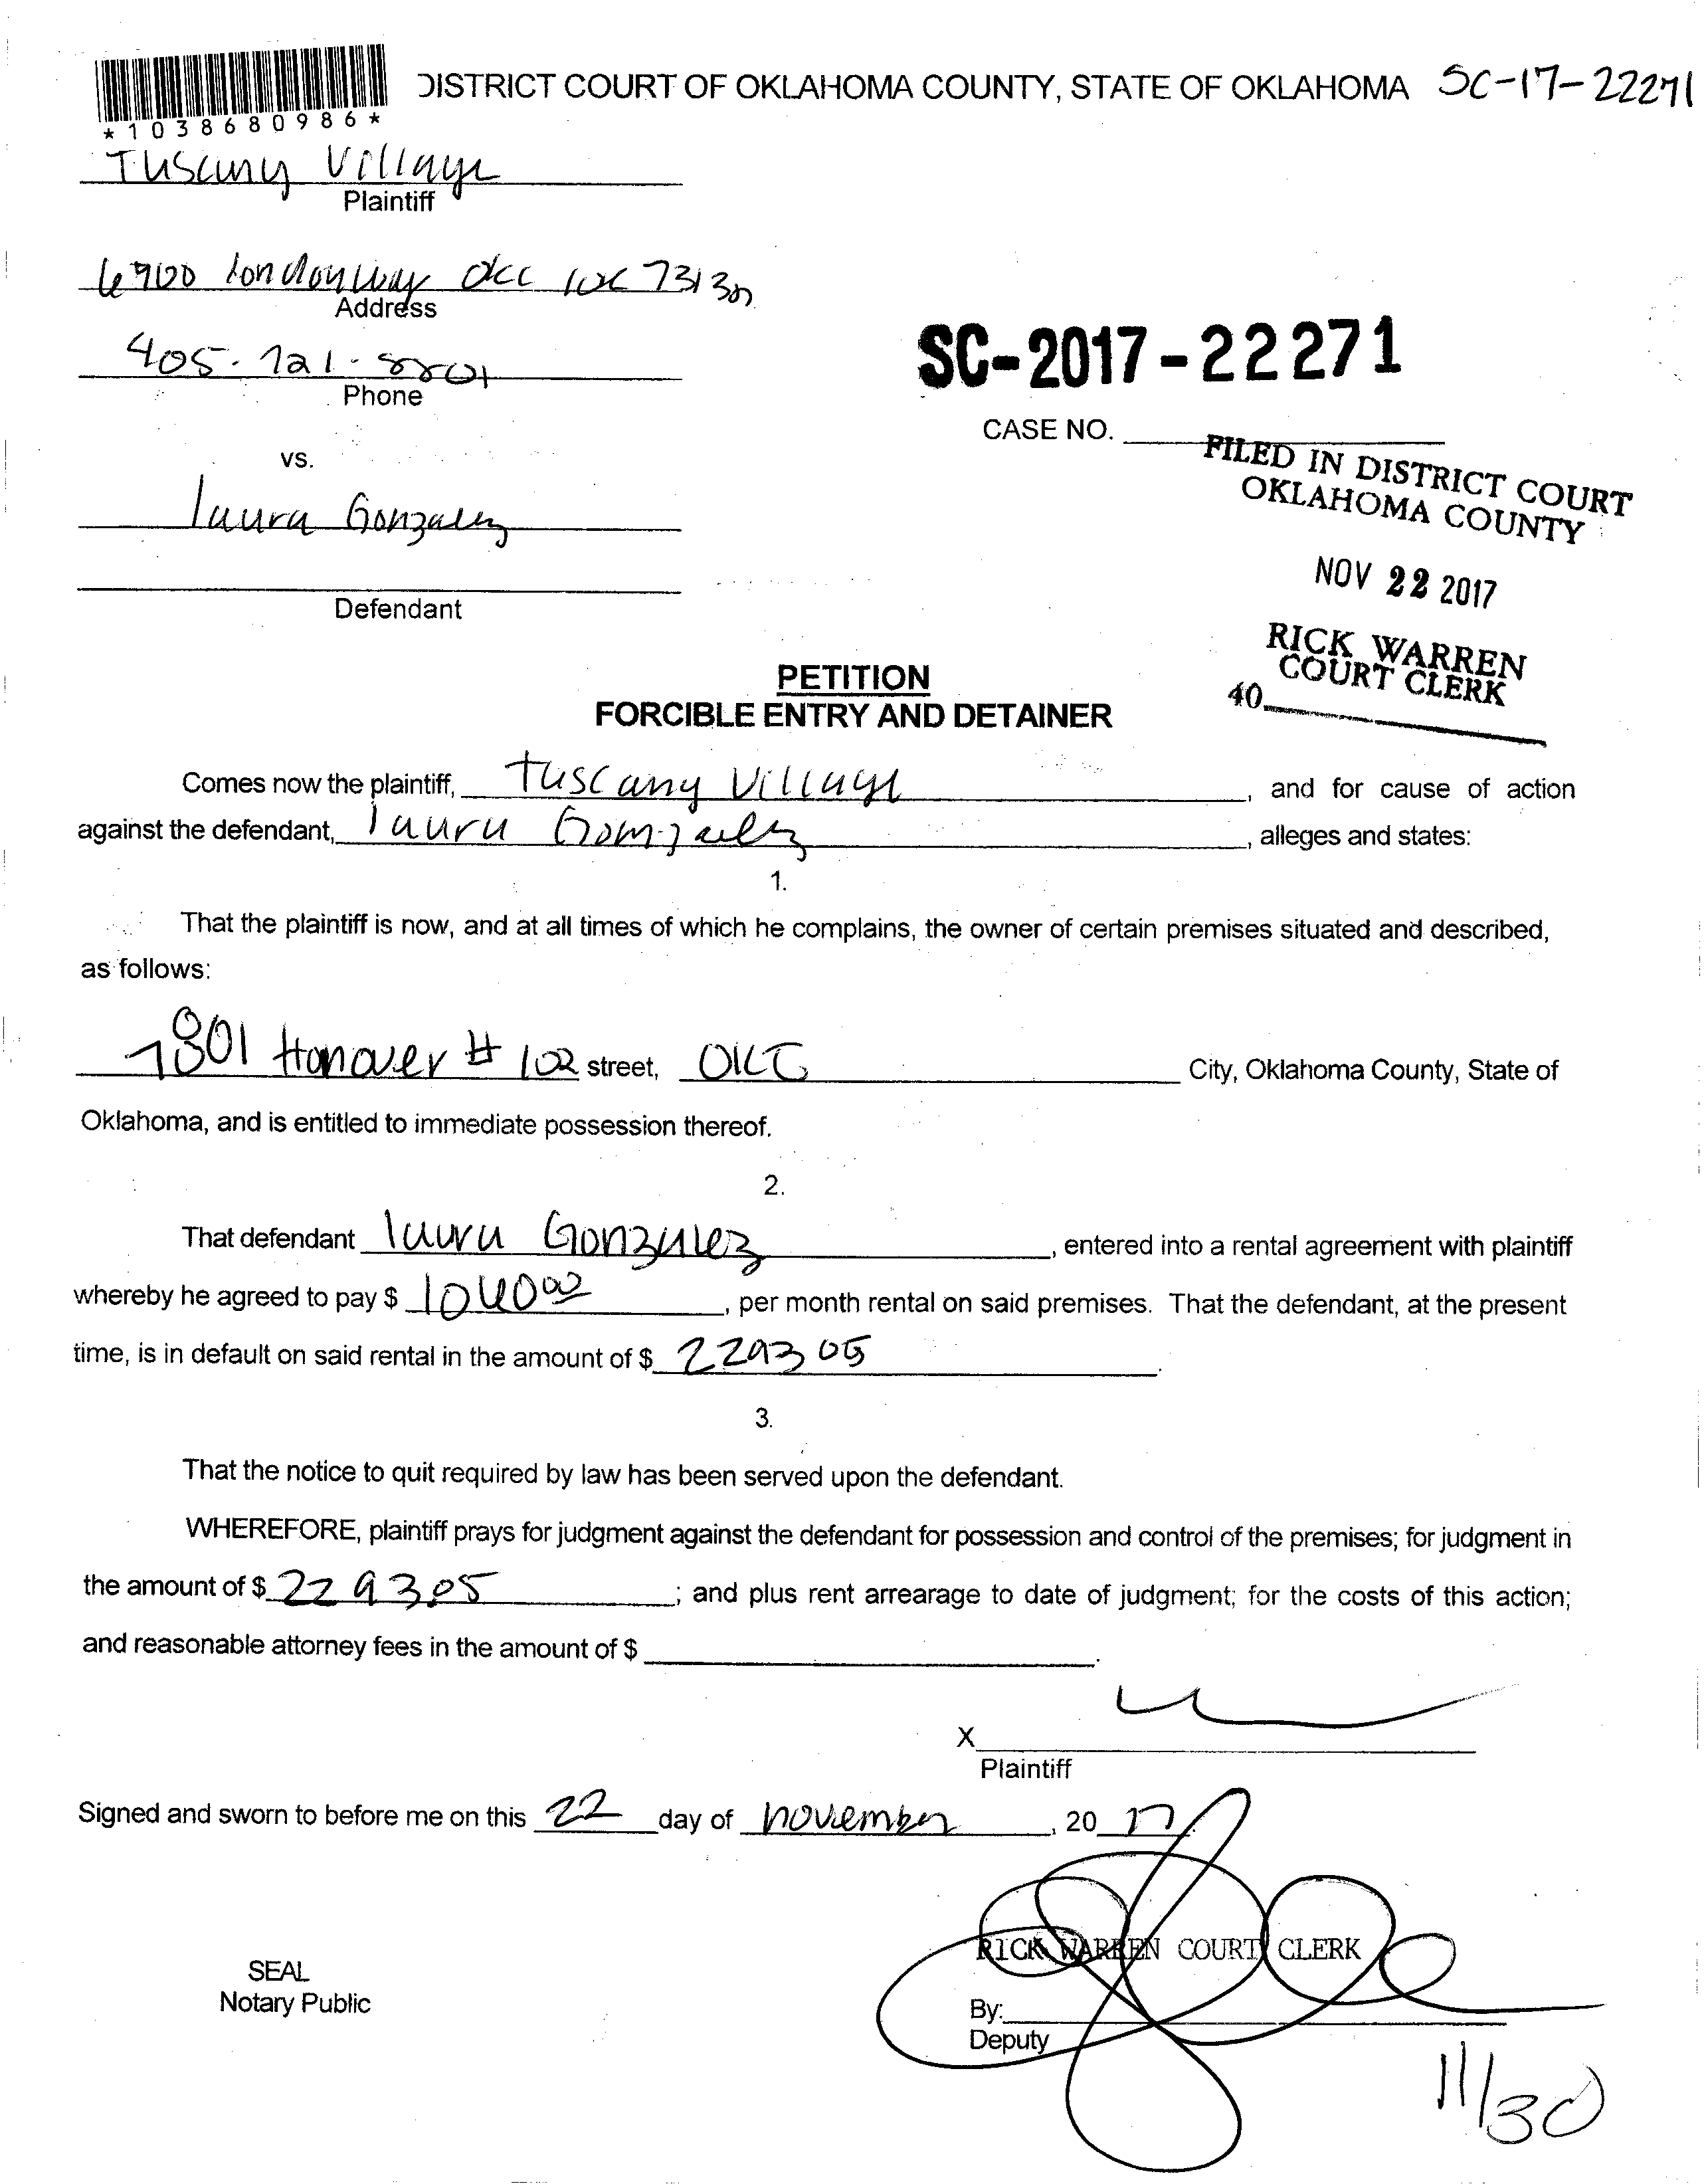 DISTRICT COURT OF OKLAHOMA COUNTY, STATE OF OKLAHOMA SC-17-22271
*1038680986*
Tuscany Village
Plaintiff
6900 London way OKC OK 73132
Address
405-721-8801
Phone
SC-2017-22271
CASE NO.
FILED IN DISTRICT COURT
OKLAHOMA COUNTY
vs.
laura Gonzalez
NOV 22 2017
Defendant
RICK WARREN
COURT CLERK
40
PETITION
FORCIBLE ENTRY AND DETAINER
Comes now the plaintiff, Tuscany Village, and for cause of action
against the defendant, laura Gonzalez, alleges and states:
1.
That the plaintiff is now, and at all times of which he complains, the owner of certain premises situated and described,
as follows:
7801 Hanover # 102 street, OKC City, Oklahoma County, State of
Oklahoma, and is entitled to immediate possession thereof.
2.
That defendant laura Gonzalez, entered into a rental agreement with plaintiff
whereby he agreed to pay $ , per month rental on said premises. That the defendant, at the present
time, is in default on said rental in the amount of $ 2293 05.
3.
That the notice to quit required by law has been served upon the defendant.
WHEREFORE, plaintiff prays for judgment against the defendant for possession and control of the premises; for judgment in
the amount of $ 2293.05; and plus rent arrearage to date of judgment; for the costs of this action;
and reasonable attorney fees in the amount of $ .
X
Plaintiff
Signed and sworn to before me on this 22 day of november, 20 17.
RICK WARREN COURT CLERK
SEAL
Notary Public
By:
Deputy
11/30